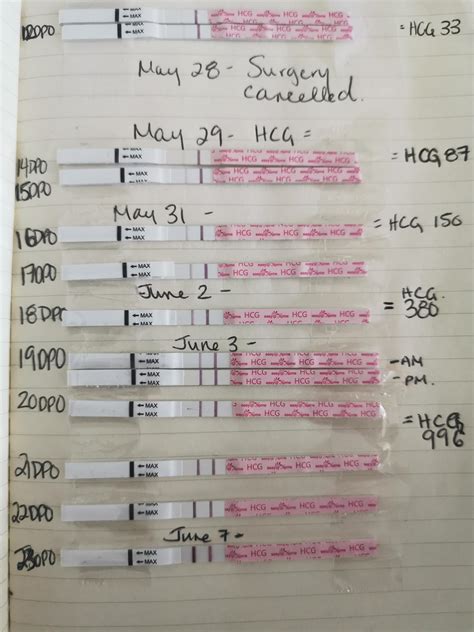 12DPO = HCG 33
May 28 - Surgery
cancelled.
May 29 - HCG =
← MAX HCG HCG
14DPO = HCG 87
← MAX HCG HCG
15DPO
May 31 -
16DPO ← MAX HCG HCG = HCG 150
17DPO ← MAX HCG HCG
June 2 -
18DPO ← MAX HCG HCG = HCG 380
June 3 -
19DPO ← MAX HCG HCG - AM
← MAX HCG HCG - PM.
20DPO ← MAX HCG HCG = HCG 996
21DPO ← MAX HCG HCG
22DPO ← MAX HCG HCG
June 7 -
23DPO ← MAX HCG HCG
← MAX HCG HCG